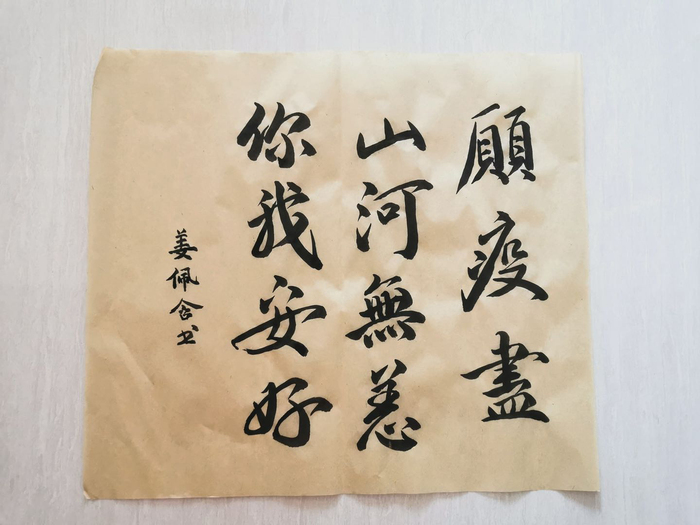 願疫盡
山河無恙
你我安好
姜佩含书